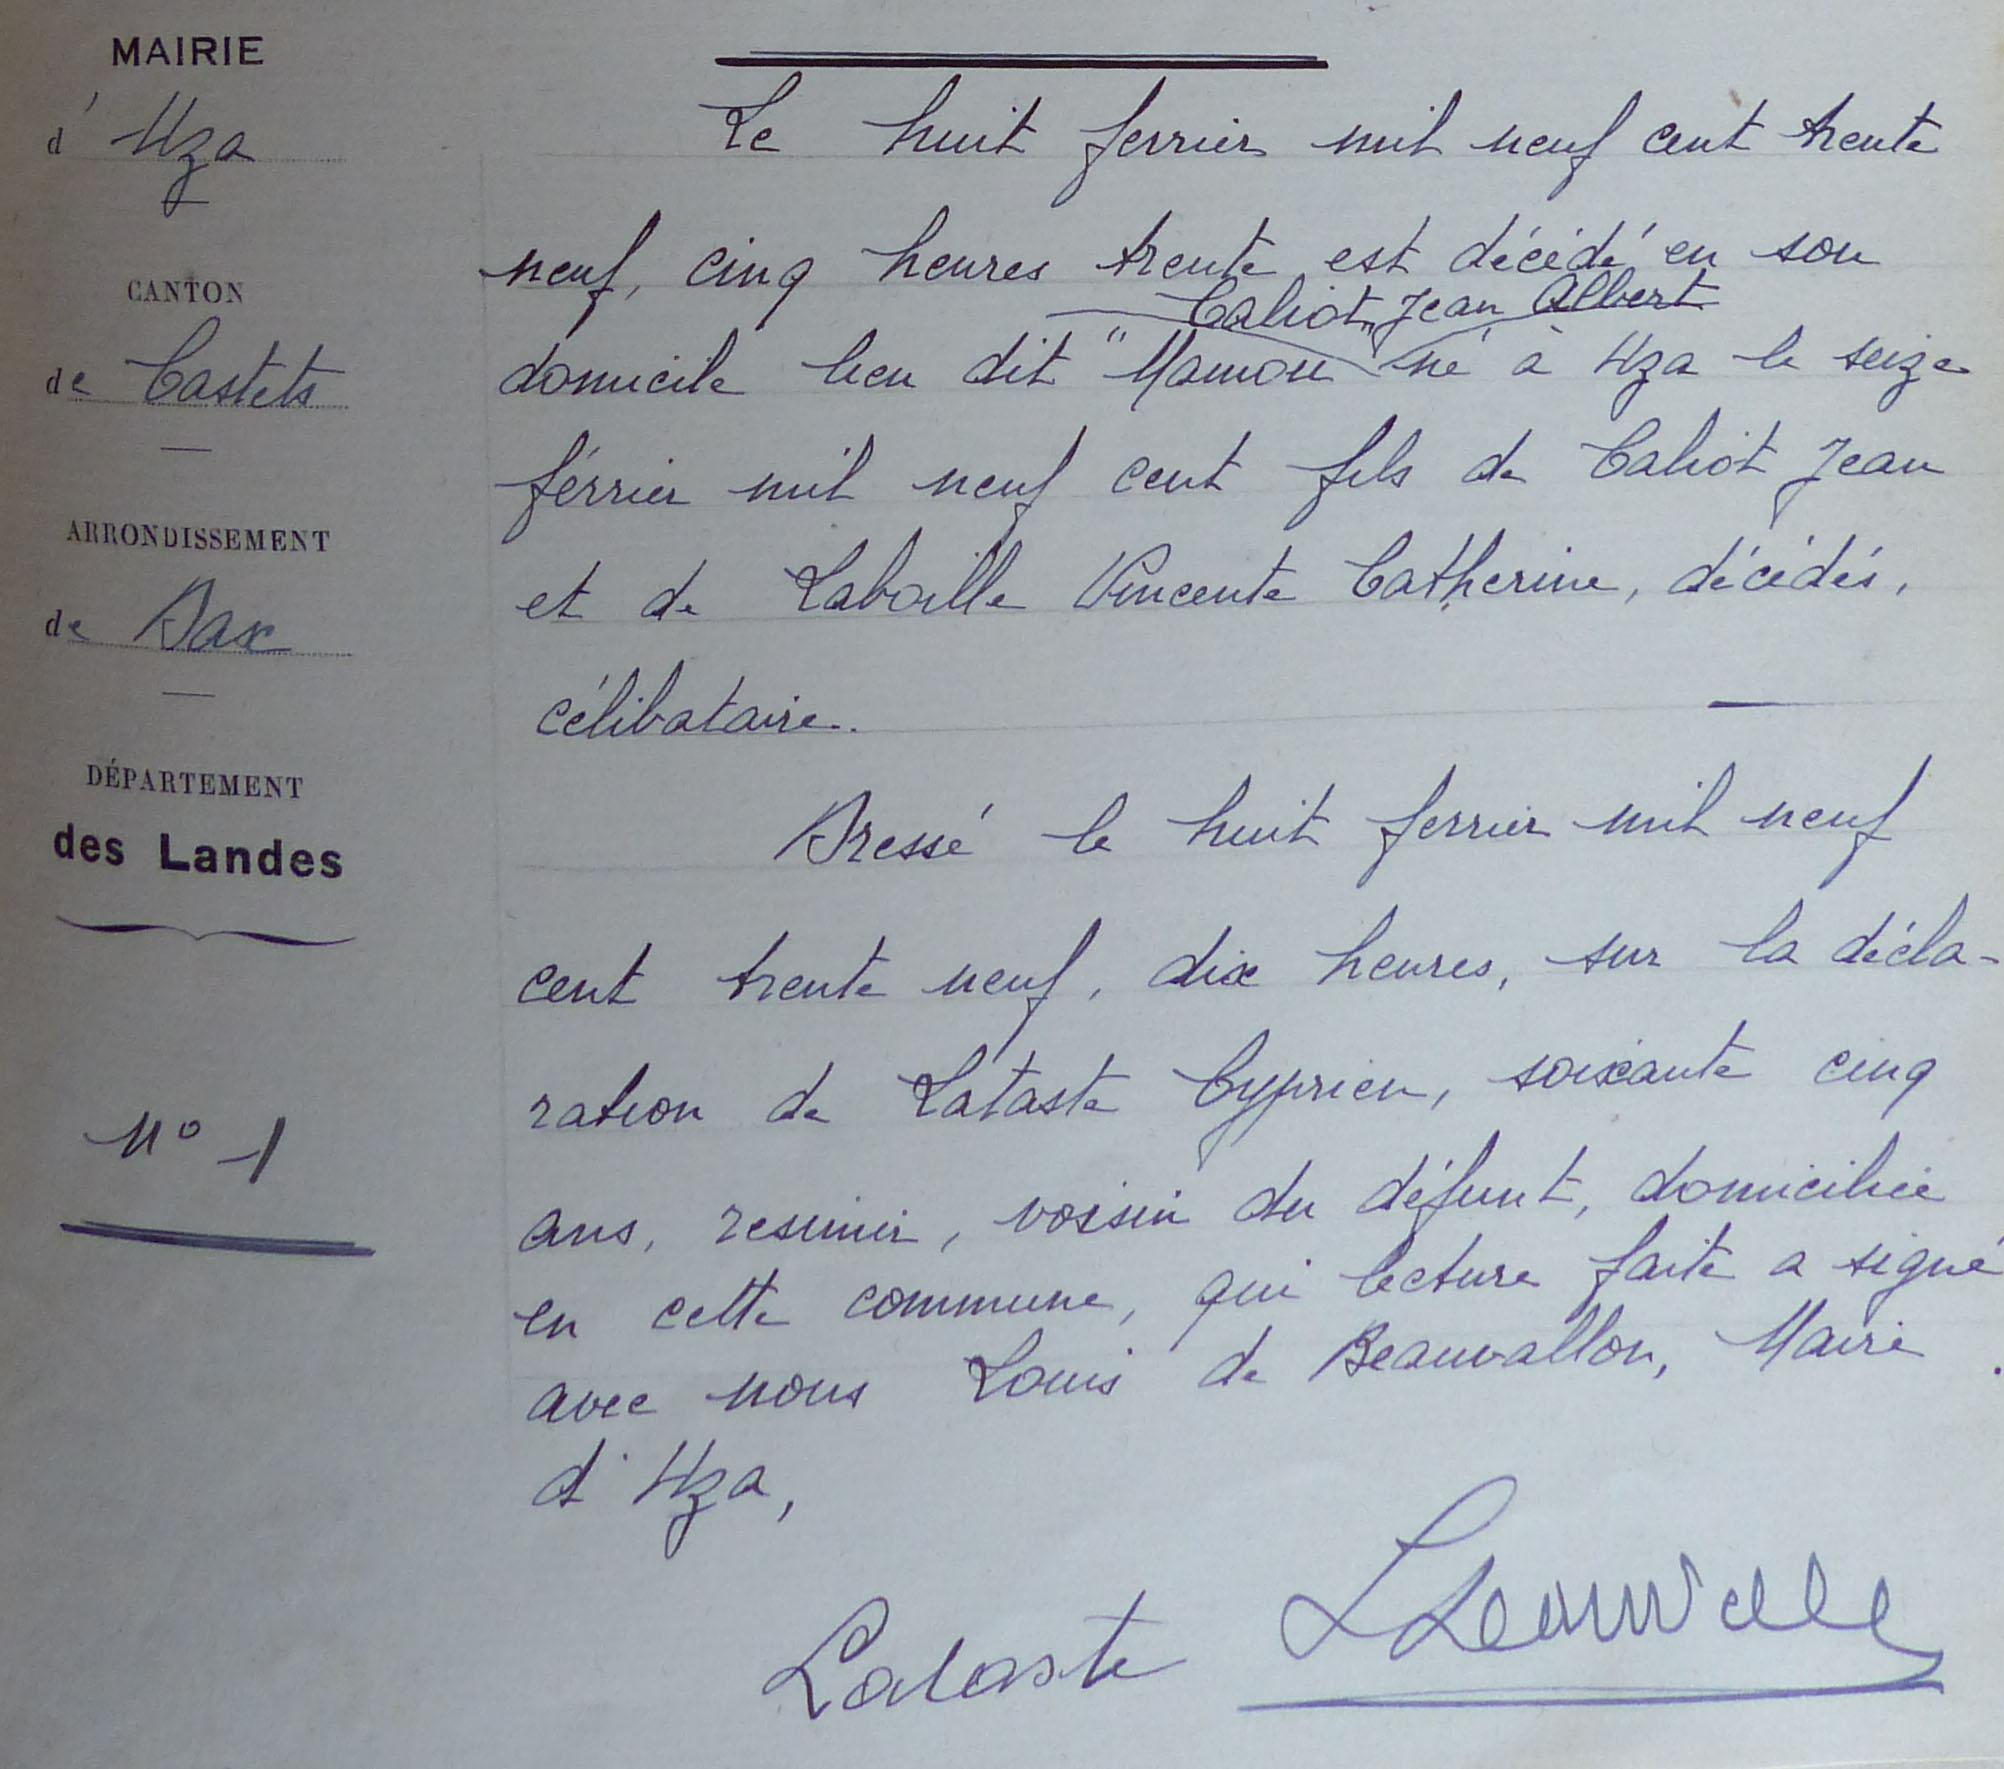 MAIRIE
d' Uza
CANTON
de Castets
ARRONDISSEMENT
de Dax
DÉPARTEMENT
des Landes
N° 1
Le huit ferrier mil neuf cent trente
neuf, cinq heures trente est décédé en son
Caliot Jean Albert
domicile lieu dit "Mamou" né à Uza le seize
férrier mil neuf cent fils de Caliot Jean
et de Laboille Vincente Catherine, décédés,
célibataire.
Dressé le huit ferrier mil neuf
cent trente neuf, dix heures, sur la décla-
ration de Lataste Cyprien, soixante cinq
ans, resinier, voisin du défunt, domiciliée
en cette commune, qui lecture faite a signé
avec nous Louis de Beauvallon, Maire
d'Uza,
Lataste